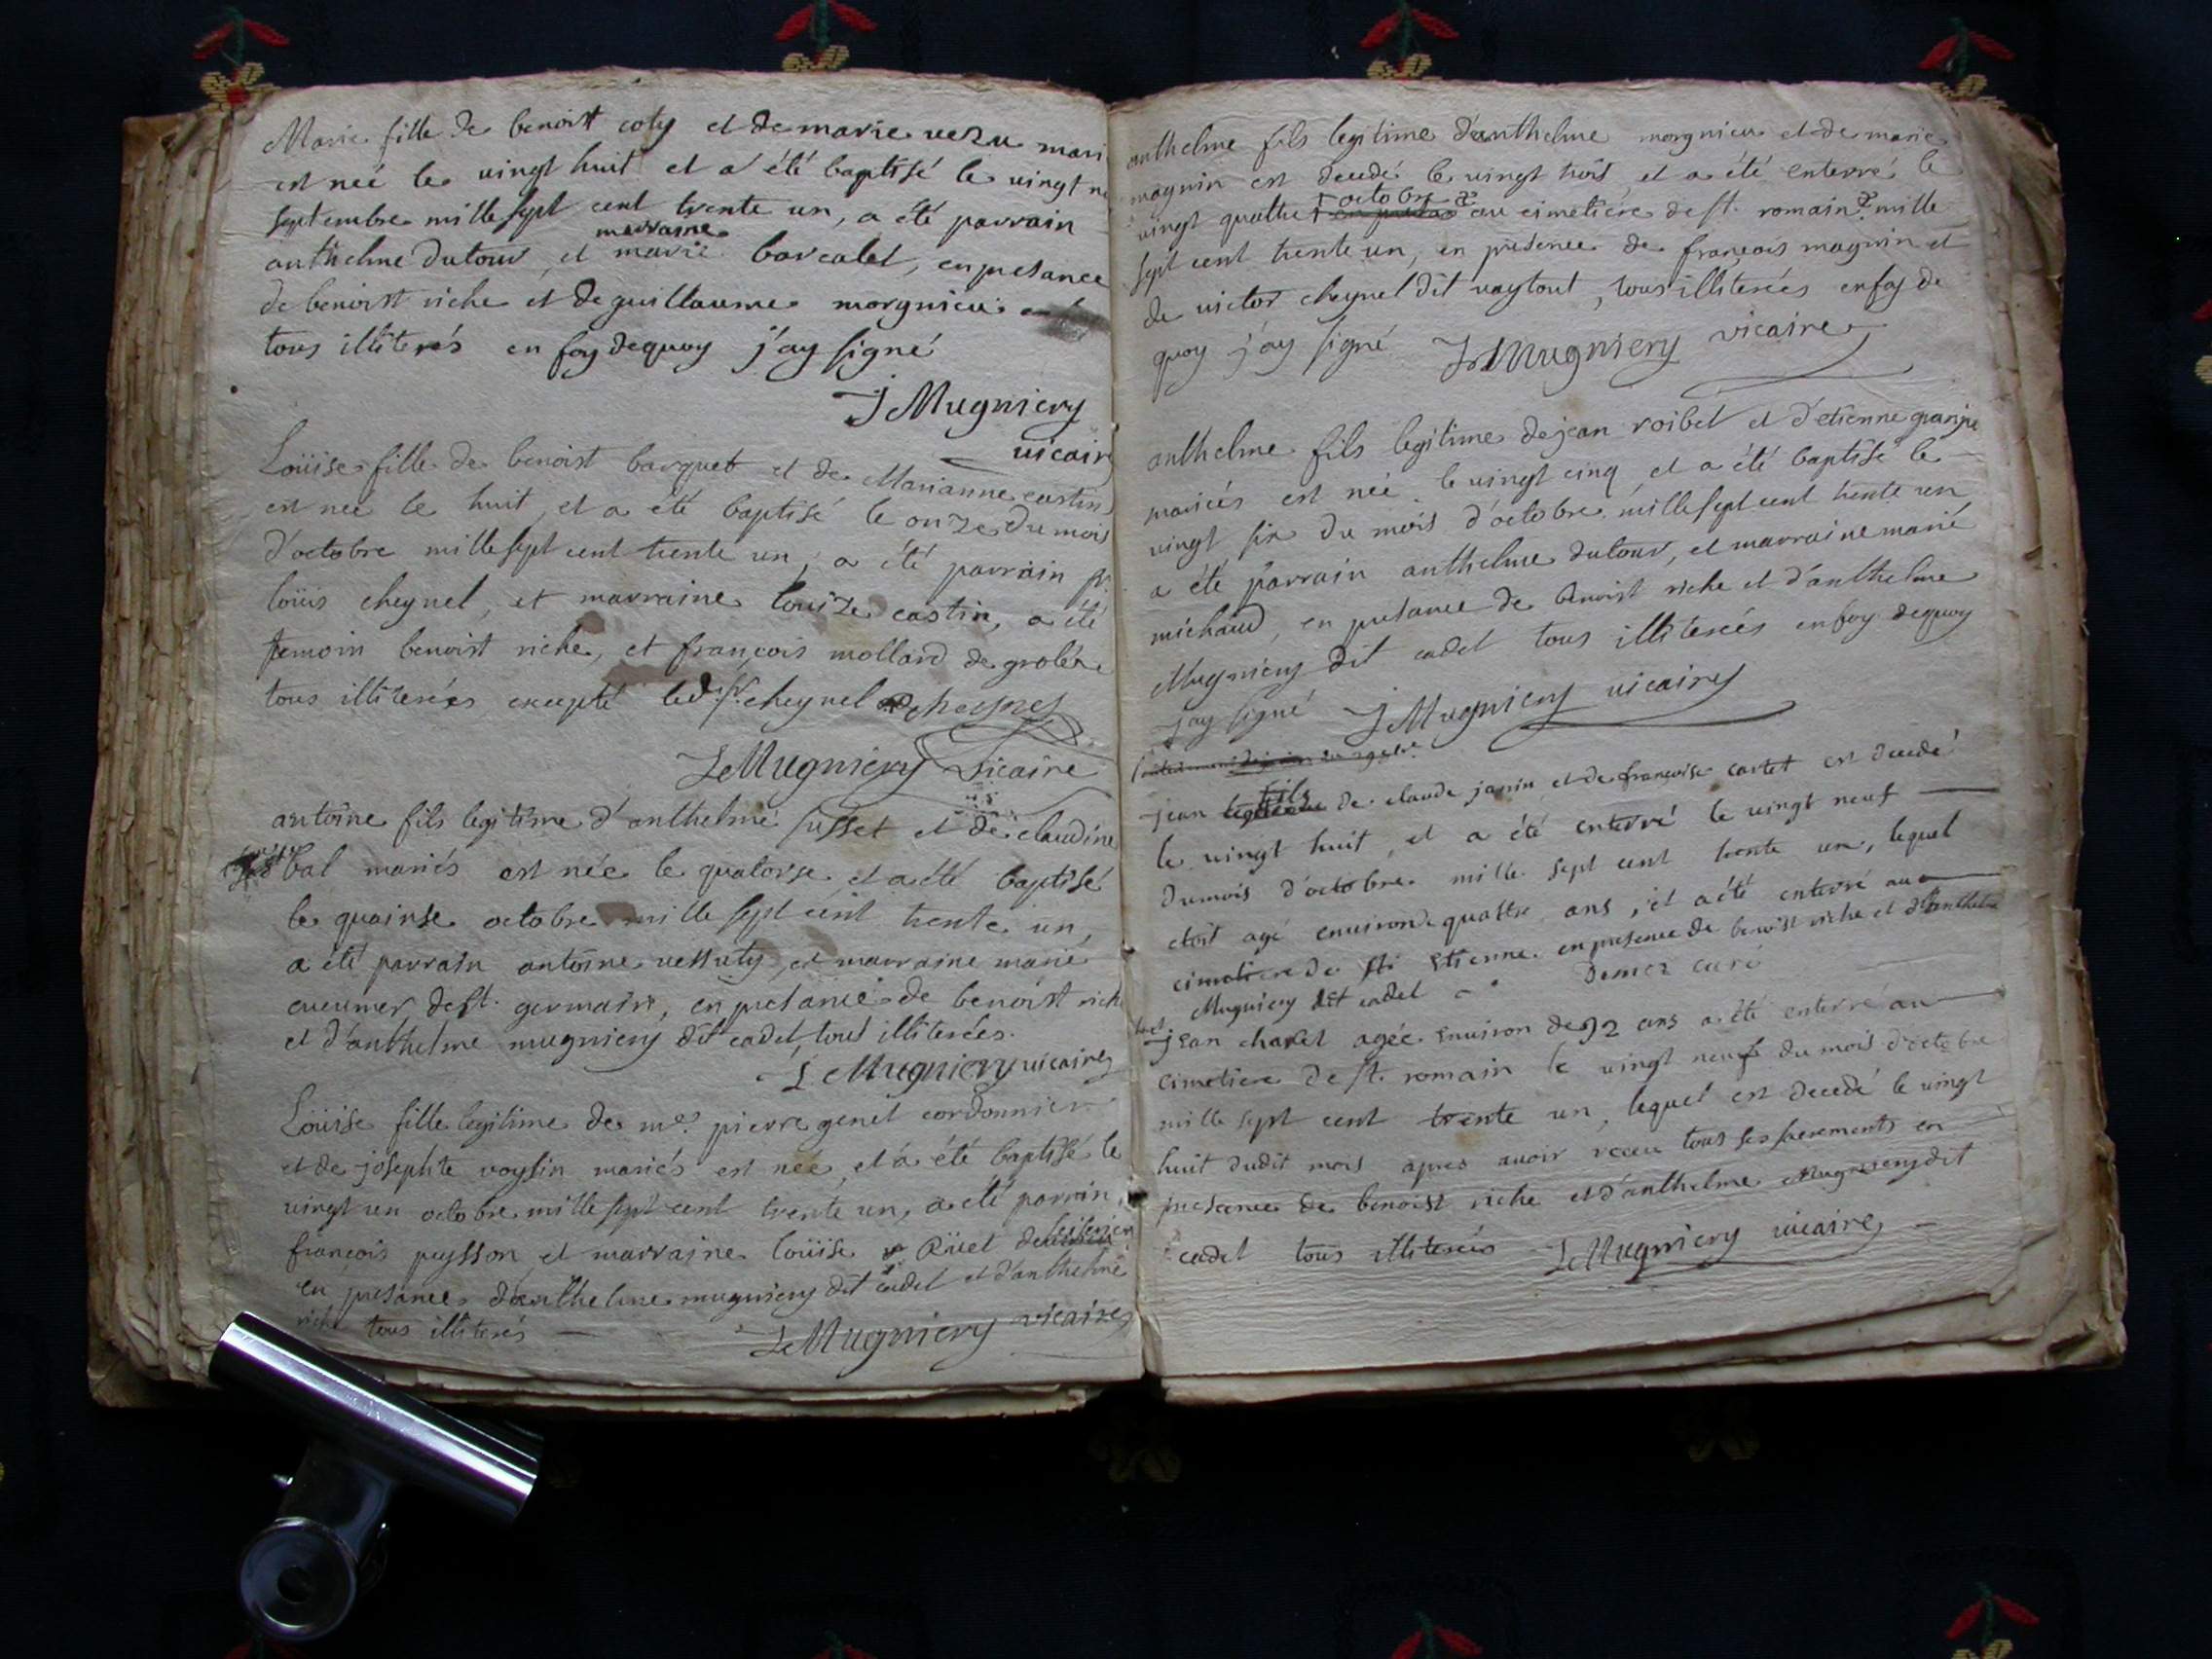 Marie fille de benoist coty et de marie vezu mari
est neé le vingt huit et a été baptisé le vingt
septembre mille sept cent trente un, a été parrain
anthelme dutour, et marraine marie barcalet, en presance
de benoist riche et de guillaume morgnieu
tous illiterés en foy de quoy j'ay signé
J Mugniery
vicaire
Loüise fille de benoist barquet et de Marianne castin
est neé le huit, et a été baptisé le onze du mois
d'octobre mille sept cent trente un, a été parrain sr.
loüis cheynel, et marraine louize castin, a été
temoin benoist riche, et françois mollard de groleé
tous illiterées excepté led. sr. cheynel cheynel
J Mugniery vicaire
antoine fils legitime d'anthelme susset et de claudine
bal mariés est née le quatorse et a été baptisé
le quainse octobre mille sept cent trente un,
a été parrain antoine vettuty, et marraine marie
cucumer de st. germain, en presance de benoist riche
et d'anthelme mugniery dit cadet, tous illiterées.
J Mugniery vicaire
Loüise fille legitime de me. pierre genet cordonnier
et de josephte voysin mariés est neé, et a été baptisé le
vingt un octobre mille sept cent trente un, a été parrain
françois peysson et marraine loüise Rüet
en presance d'anthelme mugniery dit cadet et d'anthelme
riche tous illiterés
J Mugniery vicaire
anthelme fils legitime d'anthelme morgnieu et de marie
magnin est decedé le vingt trois, et a été enterré le
vingt quatre octobre au cimetiere de st. romain mille
sept cent trente un, en presence de françois magnin et
de victor cheynel dit vaytout, tous illiterées en foy de
quoy j'ay signé J Mugniery vicaire
anthelme fils legitime de jean roibet et d'etienne grange
mariés est neé le vingt cinq et a été baptisé le
vingt six du mois d'octobre mille sept cent trente un
a été parrain anthelme dutour, et marraine marie
michaud, en presance de benoist riche et d'anthelme
Mugniery dit cadet tous illiterées en foy de quoy
j'ay signé J Mugniery vicaire
jean fils de claude janin et de françoise cartet est decedé
le vingt huit, et a été enterré le vingt neuf
du mois d'octobre mille sept cent trente un, lequel
etoit agé environ de quattre ans, et a été enterré au
cimetiere de st Etienne en presence de benoist riche et d'anthelme
Mugniery dit cadet Demez curé
jean charvet agée environ de 92 ans a été enterré au
cimetiere de st. romain le vingt neuf du mois d'octobre
mille sept cent trente un, lequel est decedé le vingt
huit dudit mois apres avoir receu tous ses sacrements en
presence de benoist riche et d'anthelme Mugniery dit
cadet tous illiterés J Mugniery vicaire